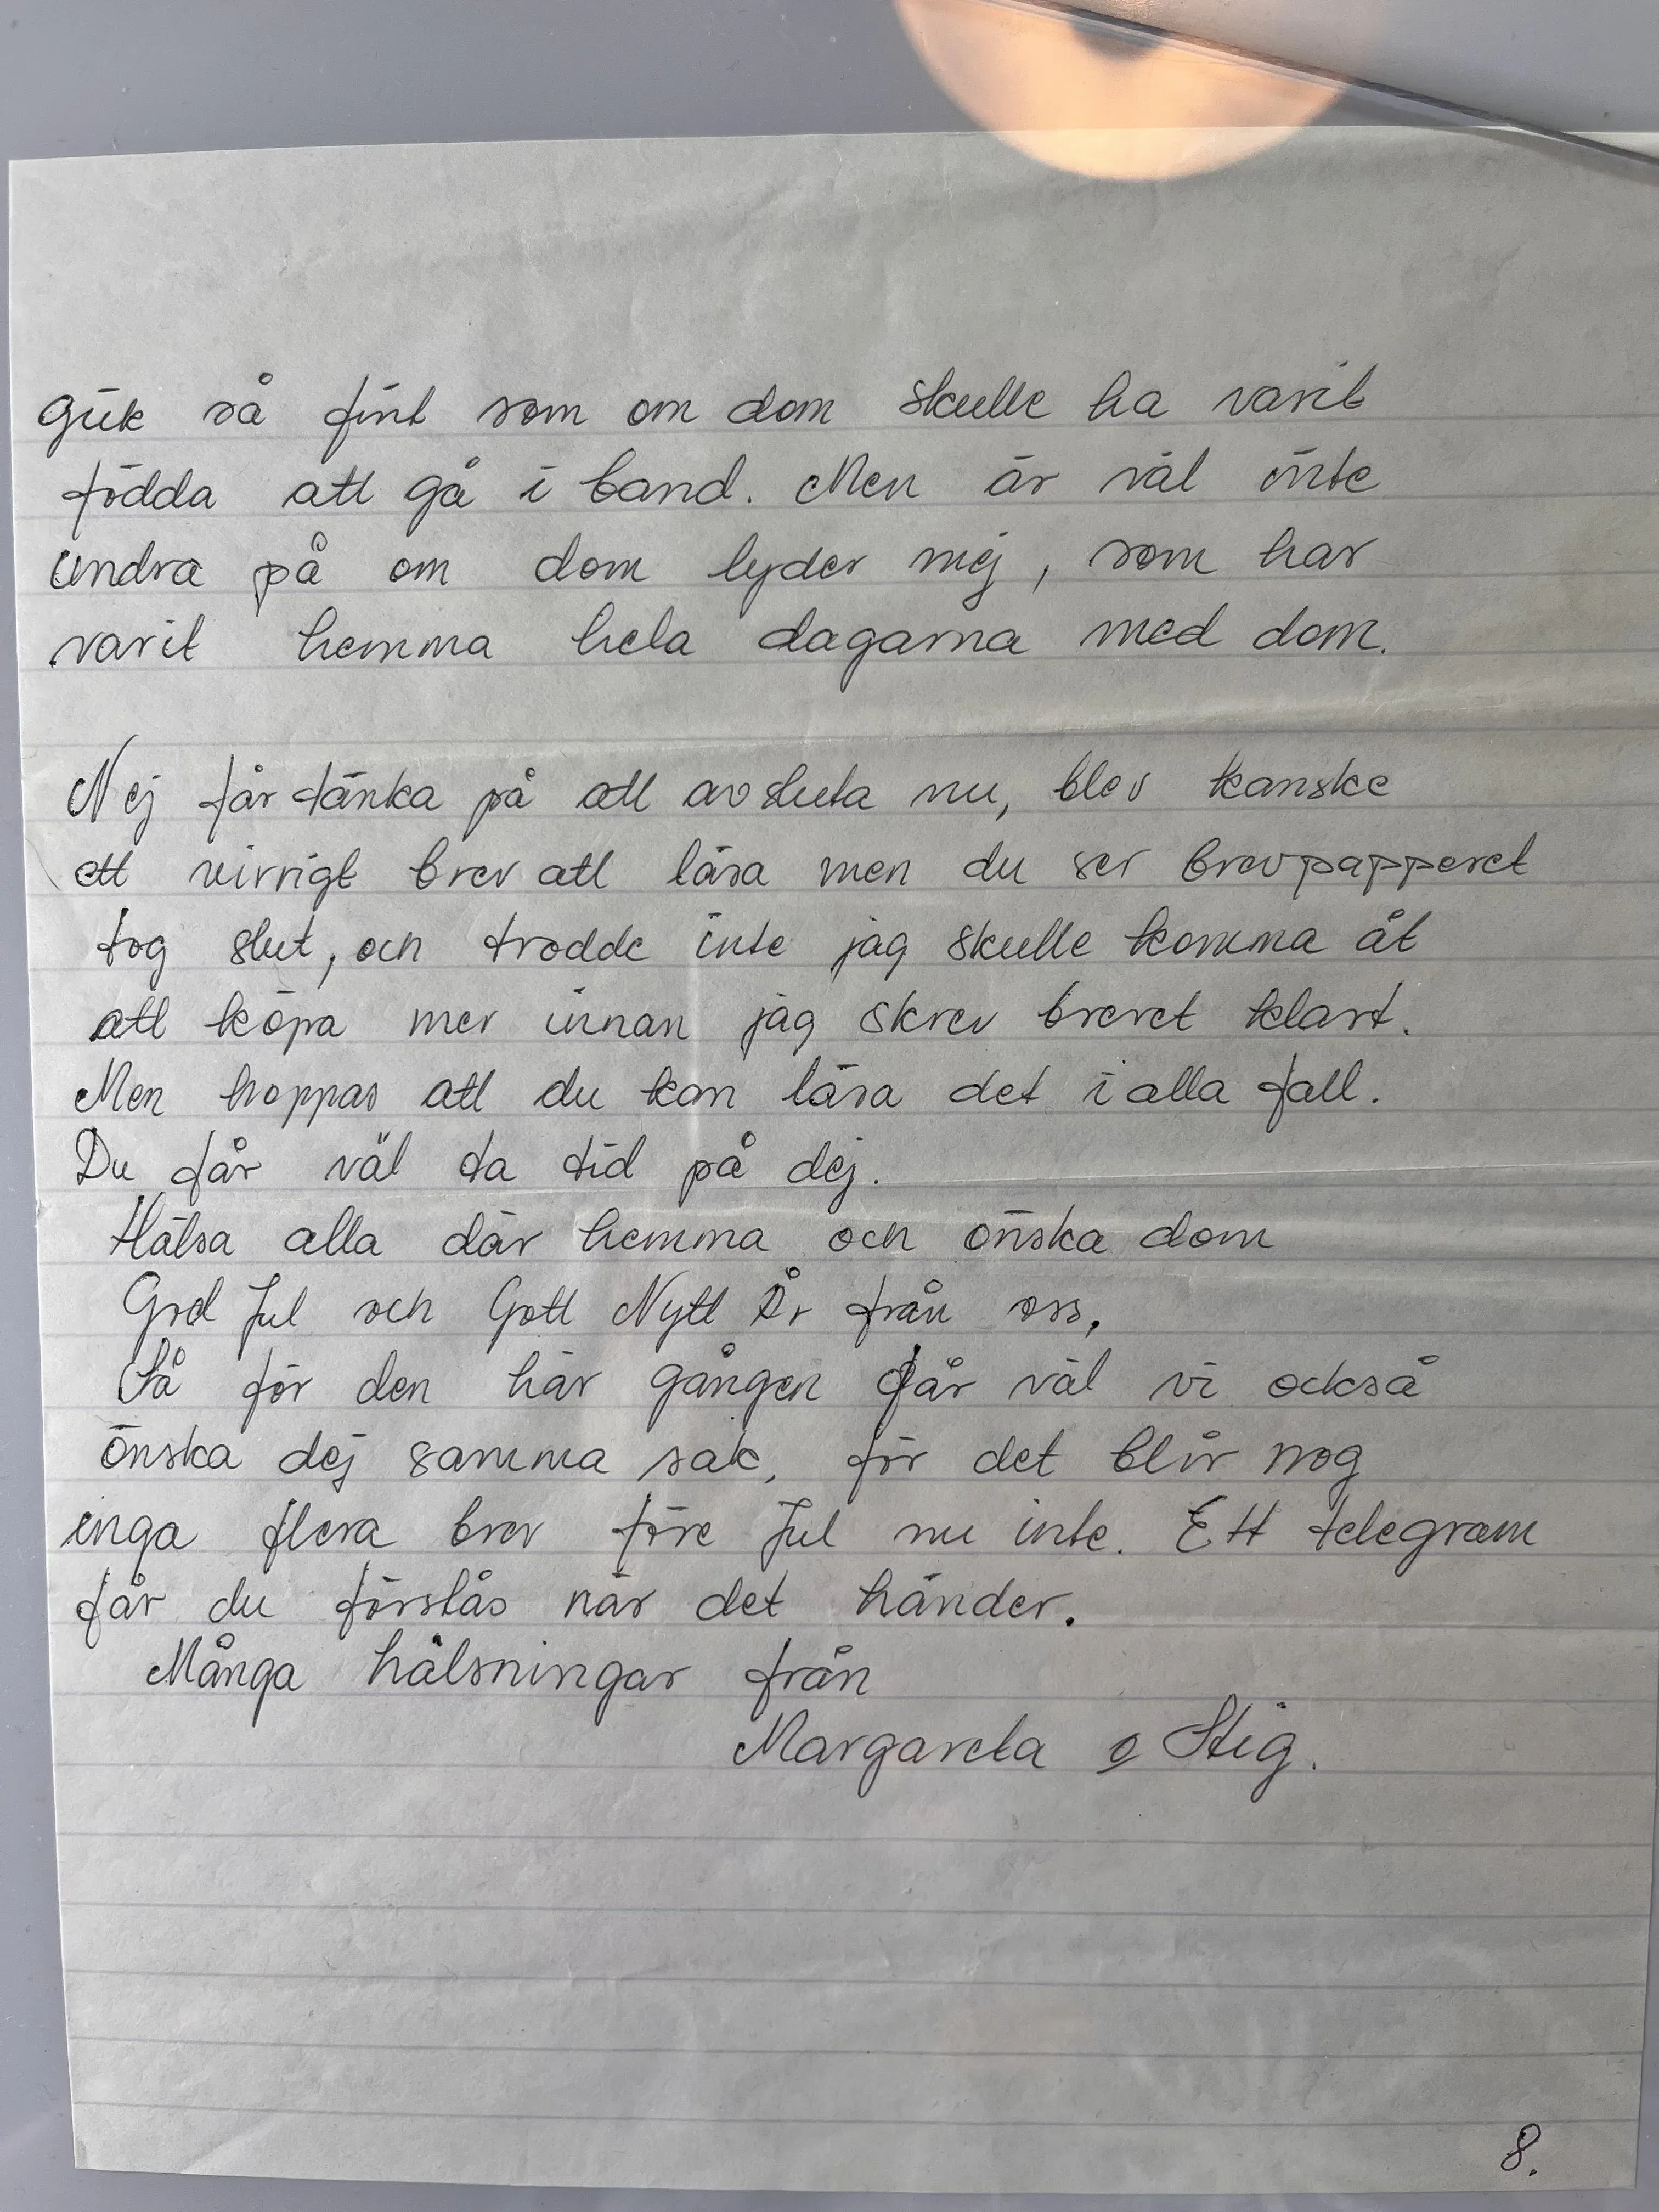 gick så fint som om dom skulle ha varit
födda att gå i band. Men är väl inte
undra på om dom lyder mej, som har
varit hemma hela dagarna med dom.
Nej får tänka på att avsluta nu, blev kanske
ett virrigt brev att läsa men du ser brevpapperet
tog slut, och trodde inte jag skulle komma åt
att köpa mer innan jag skrev brevet klart.
Men hoppas att du kan läsa det i alla fall.
Du får väl ta tid på dej.
Hälsa alla där hemma och önska dom
God Jul och Gott Nytt År från oss,
Så för den här gången får väl vi också
önska dej samma sak, för det blir nog
inga flera brev före Jul nu inte. Ett telegram
får du förstås när det händer.
Många hälsningar från
Margareta o Stig.
8.